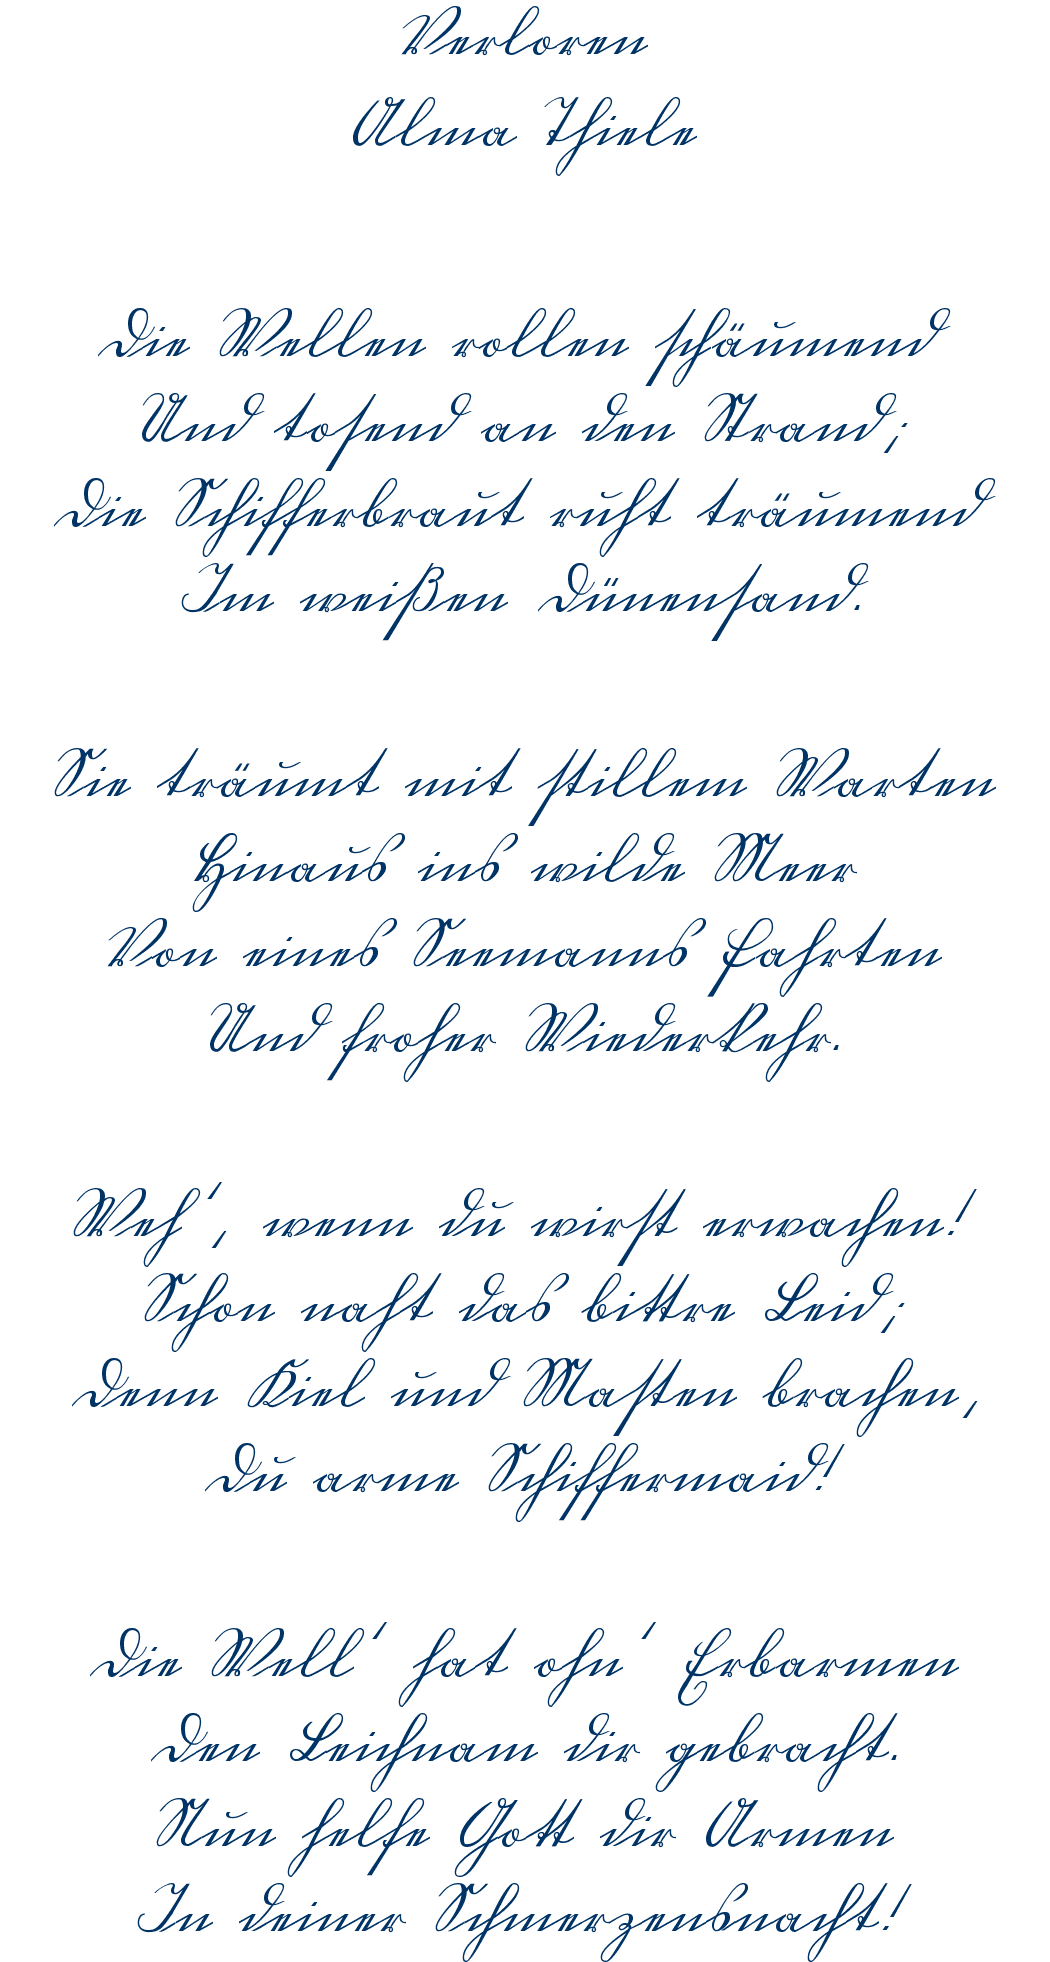 Verloren
Alma Thiele
Die Wellen rollen schäumend
Und tosend an den Strand;
Die Schifferbraut ruht träumend
Im weißen Dünensand.
Sie träumt mit stillem Warten
Hinaus ins wilde Meer
Von eines Seemanns Fahrten
Und froher Wiederkehr.
Weh', wenn du wirst erwachen!
Schon naht das bittre Leid;
Denn Kiel und Masten brachen,
Du arme Schiffermaid!
Die Well' hat ohn' Erbarmen
Den Leichnam dir gebracht.
Nun helfe Gott dir Armen
In deiner Schmerzensnacht!